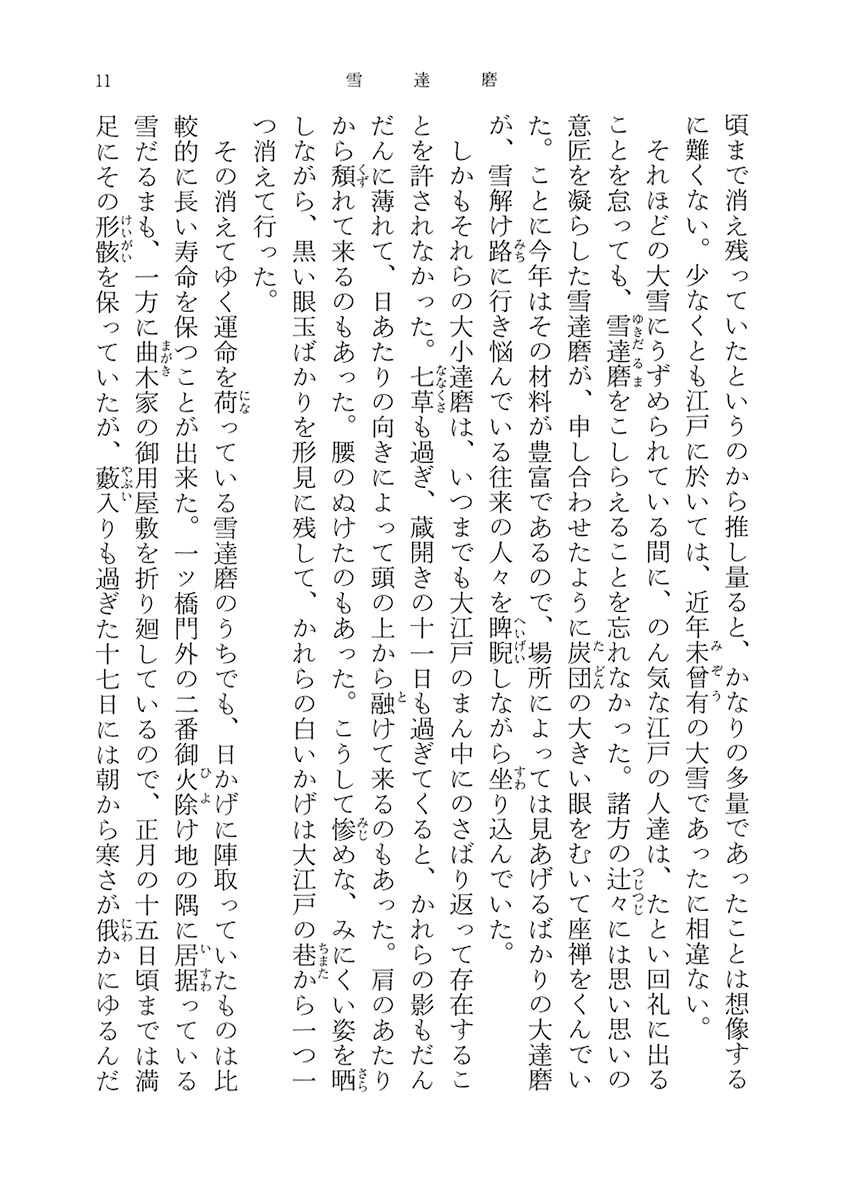 11
雪達磨
頃まで消え残っていたというのから推し量ると、かなりの多量であったことは想像する
に難くない。少なくとも江戸に於いては、近年未曾有の大雪であったに相違ない。
それほどの大雪にうずめられている間に、のん気な江戸の人達は、たとい回礼に出る
ことを怠っても、雪達磨をこしらえることを忘れなかった。諸方の辻々には思い思いの
意匠を凝らした雪達磨が、申し合わせたように炭団の大きい眼をむいて座禅をくんでい
た。ことに今年はその材料が豊富であるので、場所によっては見あげるばかりの大達磨
が、雪解け路に行き悩んでいる往来の人々を睥睨しながら坐り込んでいた。
しかもそれらの大小達磨は、いつまでも大江戸のまん中にのさばり返って存在するこ
とを許されなかった。七草も過ぎ、蔵開きの十一日も過ぎてくると、かれらの影もだん
だんに薄れて、日あたりの向きによって頭の上から融けて来るのもあった。肩のあたり
から頽れて来るのもあった。腰のぬけたのもあった。こうして惨めな、みにくい姿を晒
しながら、黒い眼玉ばかりを形見に残して、かれらの白いかげは大江戸の巷から一つ一
つ消えて行った。
その消えてゆく運命を荷っている雪達磨のうちでも、日かげに陣取っていたものは比
較的に長い寿命を保つことが出来た。一ッ橋門外の二番御火除け地の隅に居据っている
雪だるまも、一方に曲木家の御用屋敷を折り廻しているので、正月の十五日頃までは満
足にその形骸を保っていたが、藪入りも過ぎた十七日には朝から寒さが俄かにゆるんだ